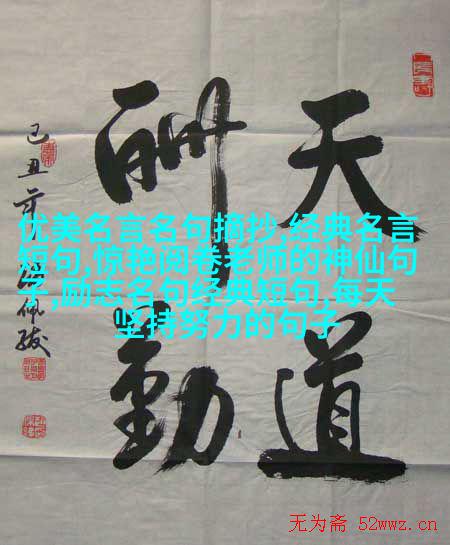 天道
酬勤
己丑
优美名言名句摘抄,经典名言
短句,惊艳阅卷老师的神仙句
子,励志名句经典短句,每天
坚持努力的句子
无为斋 52wwz.cn